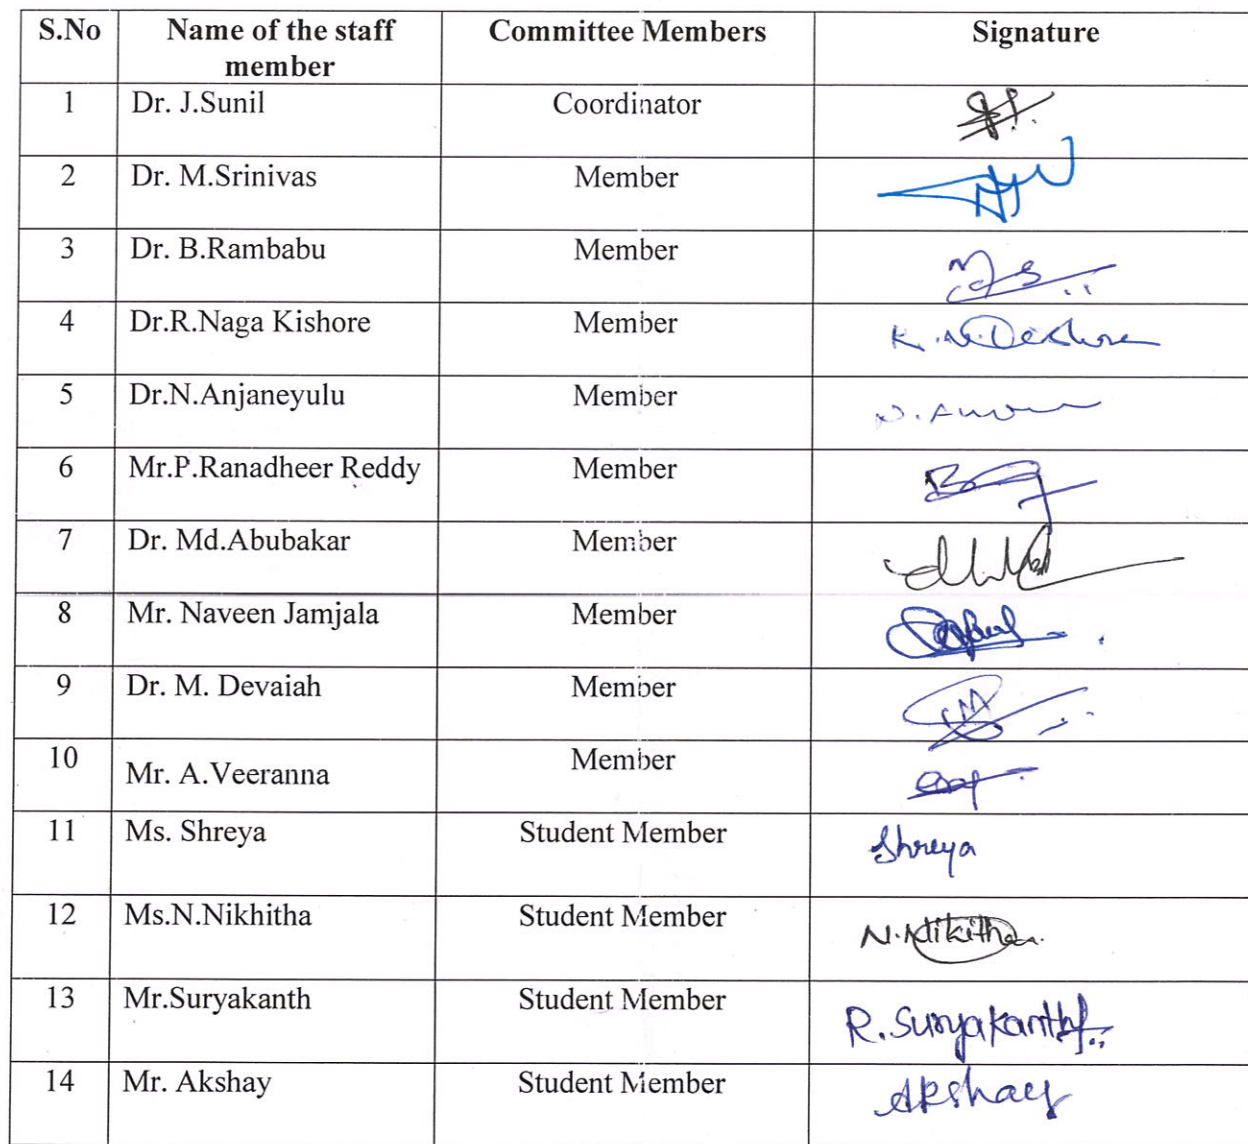 S.No Name of the staff Committee Members Signature
member
1 Dr. J.Sunil Coordinator
2 Dr. M.Srinivas Member
3 Dr. B.Rambabu Member
4 Dr.R.Naga Kishore Member
5 Dr.N.Anjaneyulu Member
6 Mr.P.Ranadheer Reddy Member
7 Dr. Md.Abubakar Member
8 Mr. Naveen Jamjala Member
9 Dr. M. Devaiah Member
10 Mr. A.Veeranna Member
11 Ms. Shreya Student Member Shreya
12 Ms.N.Nikhitha Student Member N.Nikitha
13 Mr.Suryakanth Student Member R.Suryakanth
14 Mr. Akshay Student Member Akshay